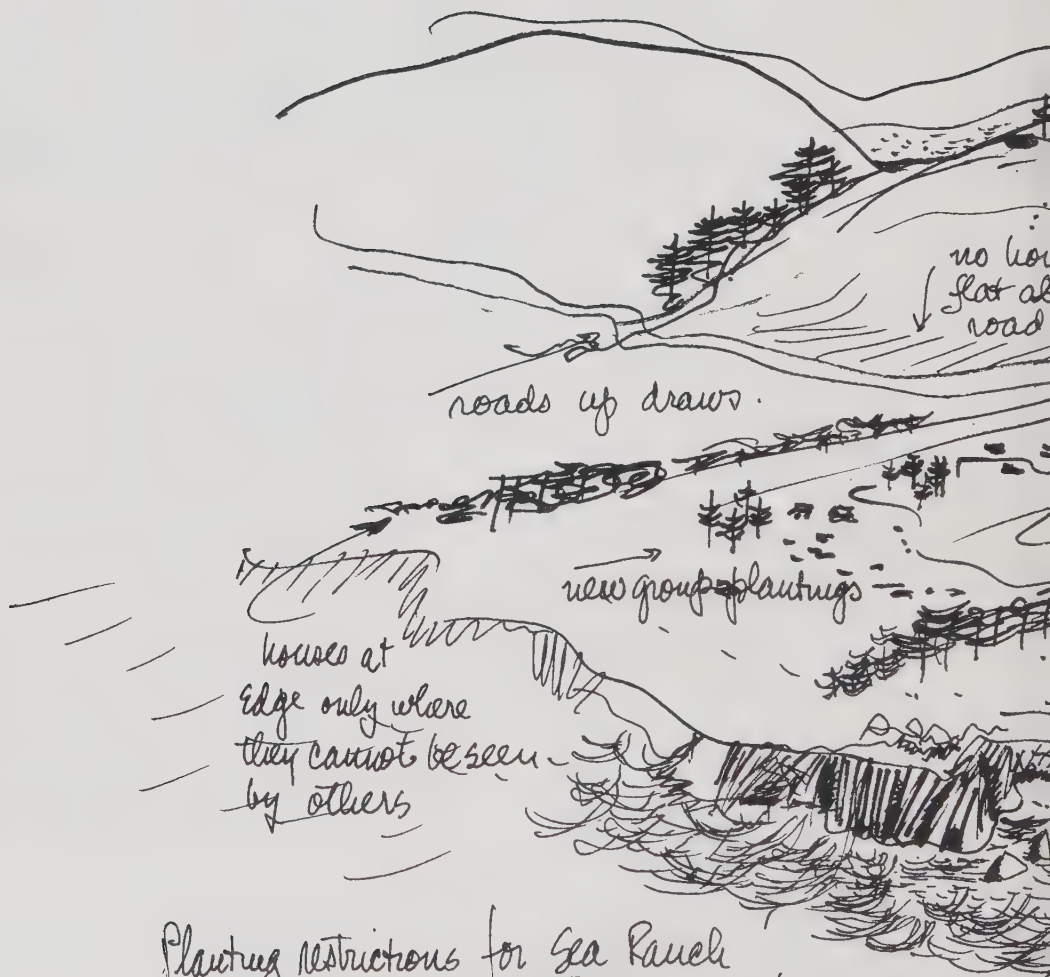 no hou
flat ab
road
roads up draws.
new group plantings
houses at
Edge only where
they cannot be seen
by others
Planting restrictions for Sea Ranch